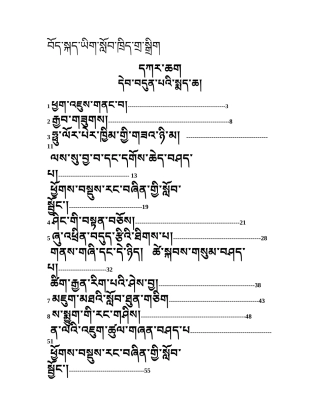 བོད་སྐད་ཡིག་སློབ་ཁྲིད་གྲ་སྒྲིག
དཀར་ཆག
དེབ་བདུན་པའི་སྨད་ཆ།
1 ཕྱག་འཇུས་གནང་བ།----------3
2 རྒྱབ་གཟུགས།----------8
3 ཧྥུ་ལོར་པེར་ཁྱིམ་གྱི་གཟའ་ཉི་མ། ----------
11
ལས་སུ་བྱ་བ་དང་དགོས་ཆེད་བཤད་
པ།---------- 13
ཕྱོགས་བསྡུས་རང་བཞིན་གྱི་སློབ་
སྦྱོང་།----------19
4 ཤིང་གི་བསྟན་བཅོས།----------21
5 ཞུ་འཕྲིན་བདུད་རྩིའི་ཐིགས་པ།----------28
གནས་གཞི་དང་དེ་ཉིད། ཚེ་སྐབས་གསུམ་བཤད་
པ།----------32
ཚིག་རྒྱན་རིག་པའི་ཤེས་བྱ།----------38
7 མཇུག་མཐའི་སློབ་ཐུན་གཅིག----------43
8 ས་སྨུག་གི་རང་གཤིས།----------48
ན་ལེའི་འཇུག་ཚུལ་གཞན་བཤད་པ----------
51
ཕྱོགས་བསྡུས་རང་བཞིན་གྱི་སློབ་
སྦྱོང་།----------55